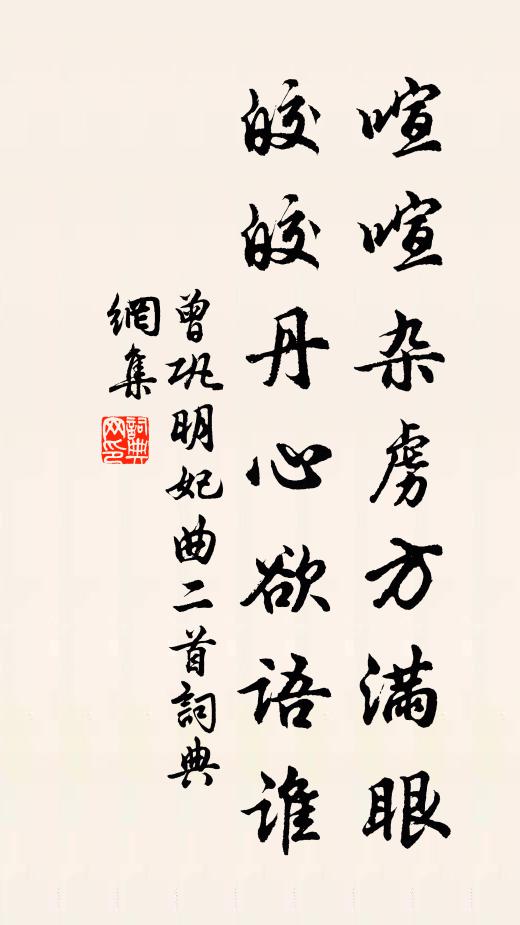 喧喧杂虏方满眼
皎皎丹心欲语谁
曾巩明妃曲二首詞典
網集
詞典
网印